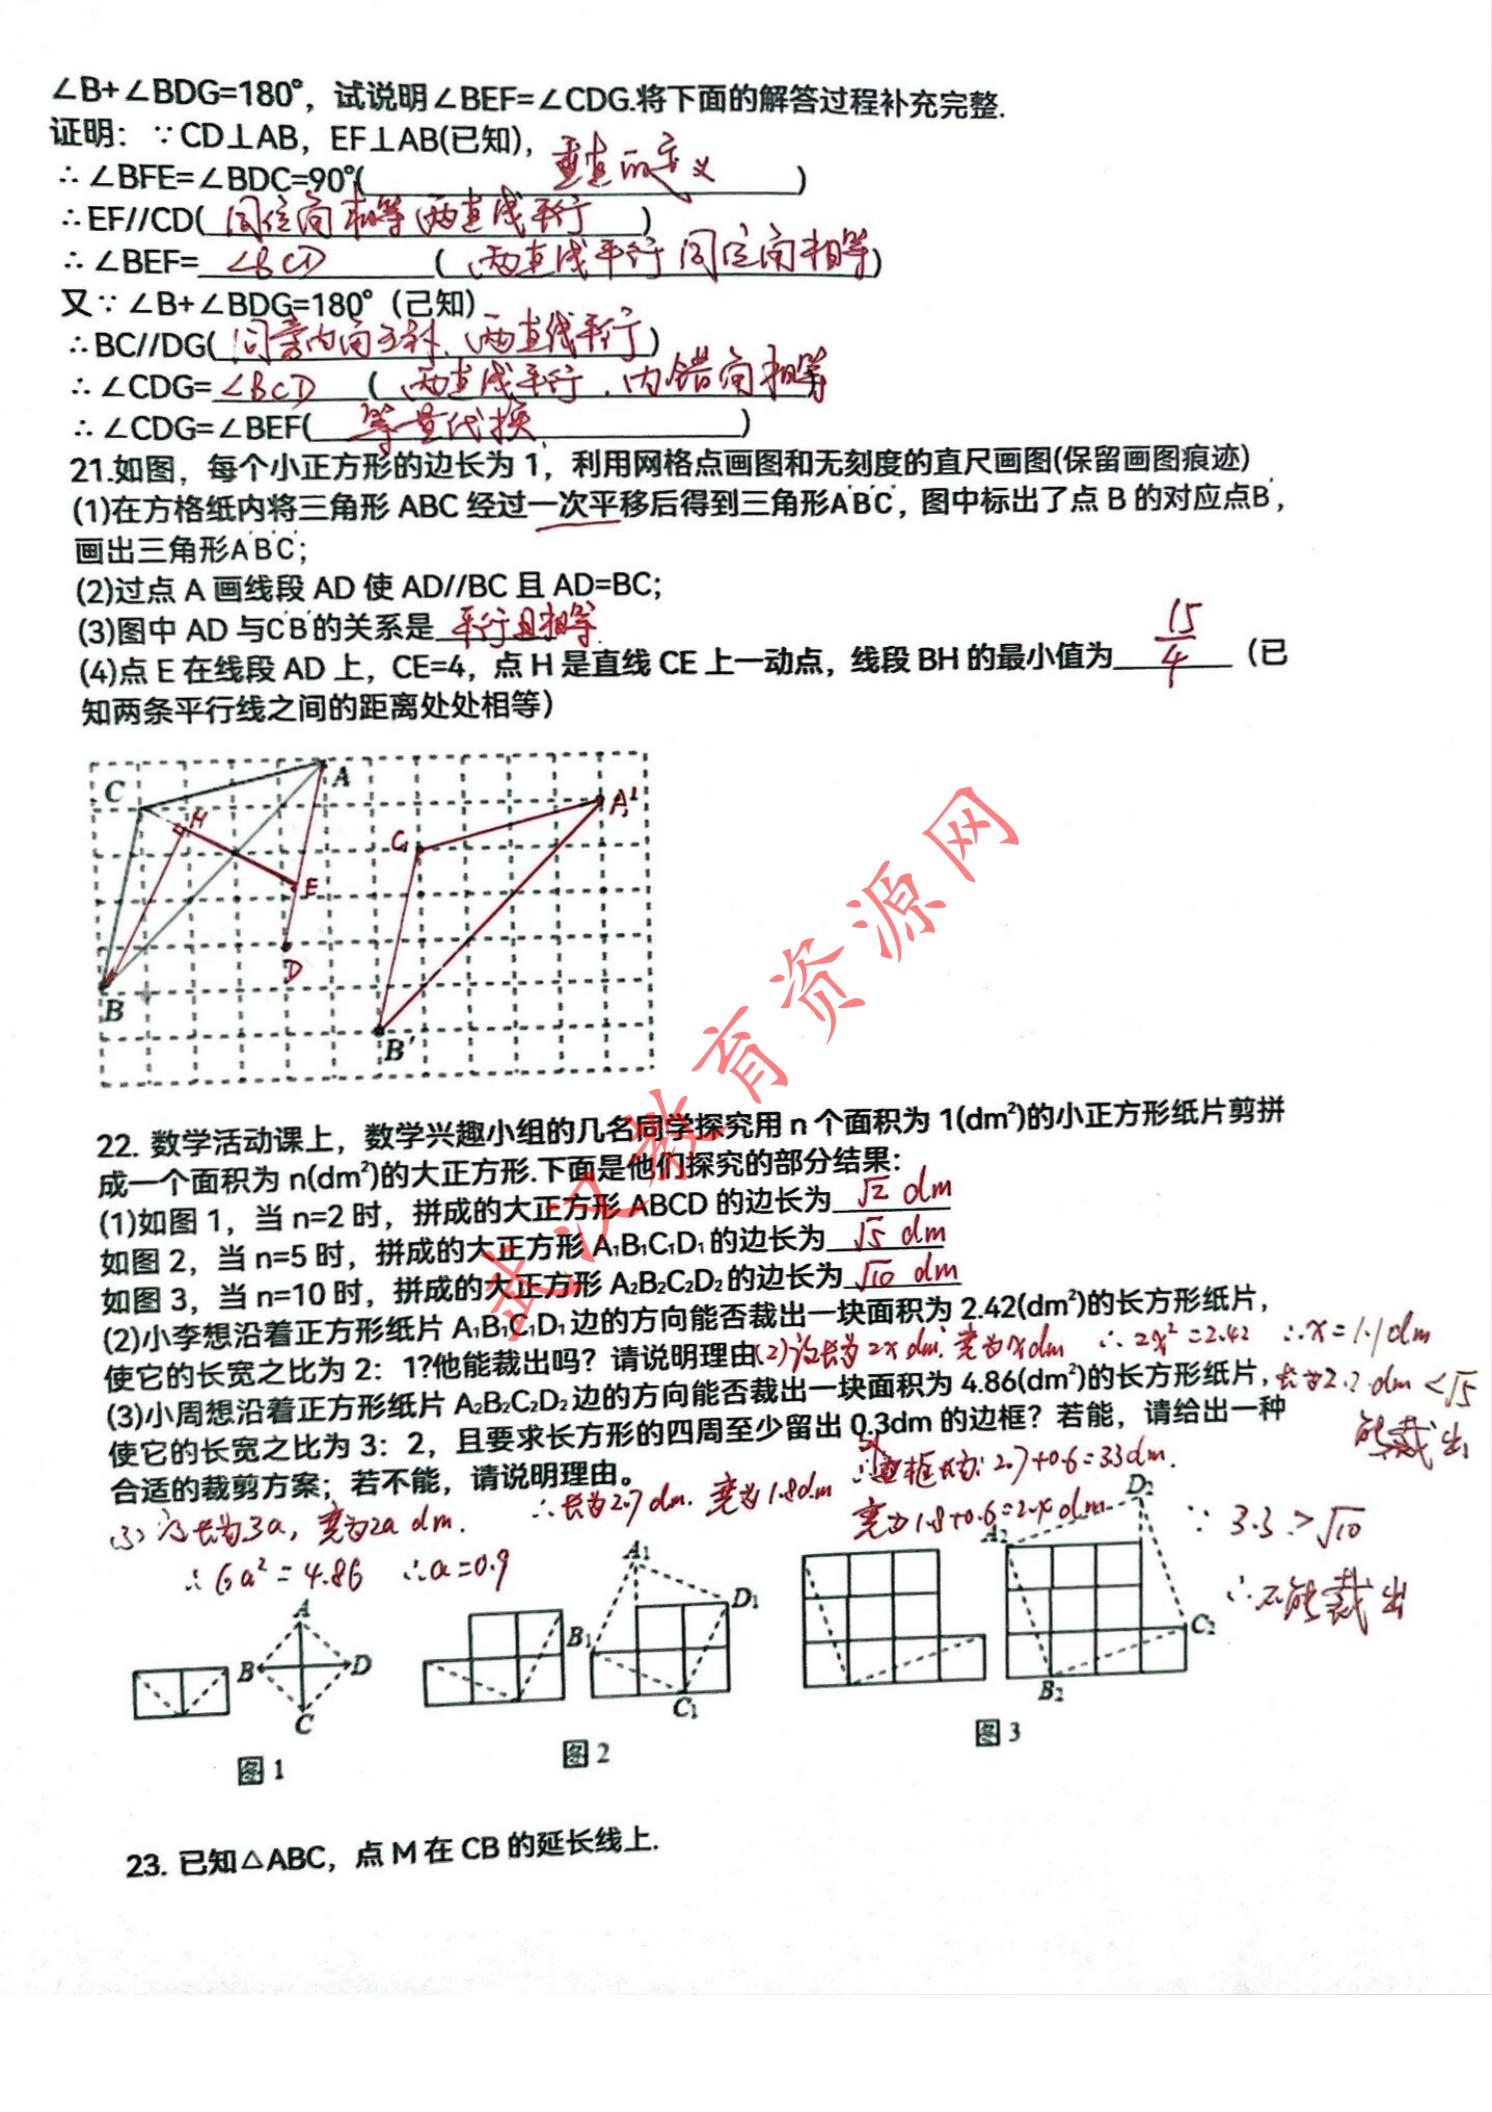 ∠B+∠BDG=180°，试说明∠BEF=∠CDG.将下面的解答过程补充完整.
证明：∵CD⊥AB，EF⊥AB(已知)，
∴∠BFE=∠BDC=90°( 垂直的定义 )
∴EF//CD( 同位角相等,两直线平行 )
∴∠BEF= ∠BCD ( 两直线平行 同位角相等 )
又∵∠B+∠BDG=180°（己知）
∴BC//DG( 同旁内角互补、两直线平行 )
∴∠CDG= ∠BCD ( 两直线平行，内错角相等
∴∠CDG=∠BEF( 等量代换 )
21.如图，每个小正方形的边长为1，利用网格点画图和无刻度的直尺画图(保留画图痕迹)
(1)在方格纸内将三角形 ABC 经过一次平移后得到三角形A′B′C′，图中标出了点 B 的对应点B′，
画出三角形A′B′C′；
(2)过点 A 画线段 AD 使 AD//BC 且 AD=BC；
(3)图中 AD 与C′B′的关系是 平行且相等
(4)点 E 在线段 AD 上，CE=4，点 H 是直线 CE 上一动点，线段 BH 的最小值为 15/4 （已
知两条平行线之间的距离处处相等）
C A H E D B
C₁ A₁' B′
22. 数学活动课上，数学兴趣小组的几名同学探究用 n 个面积为 1(dm²)的小正方形纸片剪拼
成一个面积为 n(dm²)的大正方形.下面是他们探究的部分结果：
(1)如图 1，当 n=2 时，拼成的大正方形 ABCD 的边长为 √2 dm
如图 2，当 n=5 时，拼成的大正方形 A₁B₁C₁D₁ 的边长为 √5 dm
如图 3，当 n=10 时，拼成的大正方形 A₂B₂C₂D₂ 的边长为 √10 dm
(2)小李想沿着正方形纸片 A₁B₁C₁D₁ 边的方向能否裁出一块面积为 2.42(dm²)的长方形纸片，
使它的长宽之比为 2：1?他能裁出吗？请说明理由(2)设长为2x dm, 宽为x dm ∴2x²=2.42 ∴x=1.1dm
(3)小周想沿着正方形纸片 A₂B₂C₂D₂ 边的方向能否裁出一块面积为 4.86(dm²)的长方形纸片，长为2.2 dm <√5
使它的长宽之比为 3：2，且要求长方形的四周至少留出 0.3dm 的边框？若能，请给出一种
能裁出
合适的裁剪方案；若不能，请说明理由。
∴长为2.7dm. 宽为1.8dm ∴边框长为: 2.7+0.6=3.3dm.
(3)设长为3a，宽为2a dm. 宽为1.8+0.6=2.4dm ∵3.3>√10
∴6a²=4.86 ∴a=0.9 ∴不能裁出
A B C D
图 1
A₁ B₁ C₁ D₁
图 2
A₂ B₂ C₂ D₂
图 3
23. 已知△ABC，点 M 在 CB 的延长线上.
武汉教育资源网